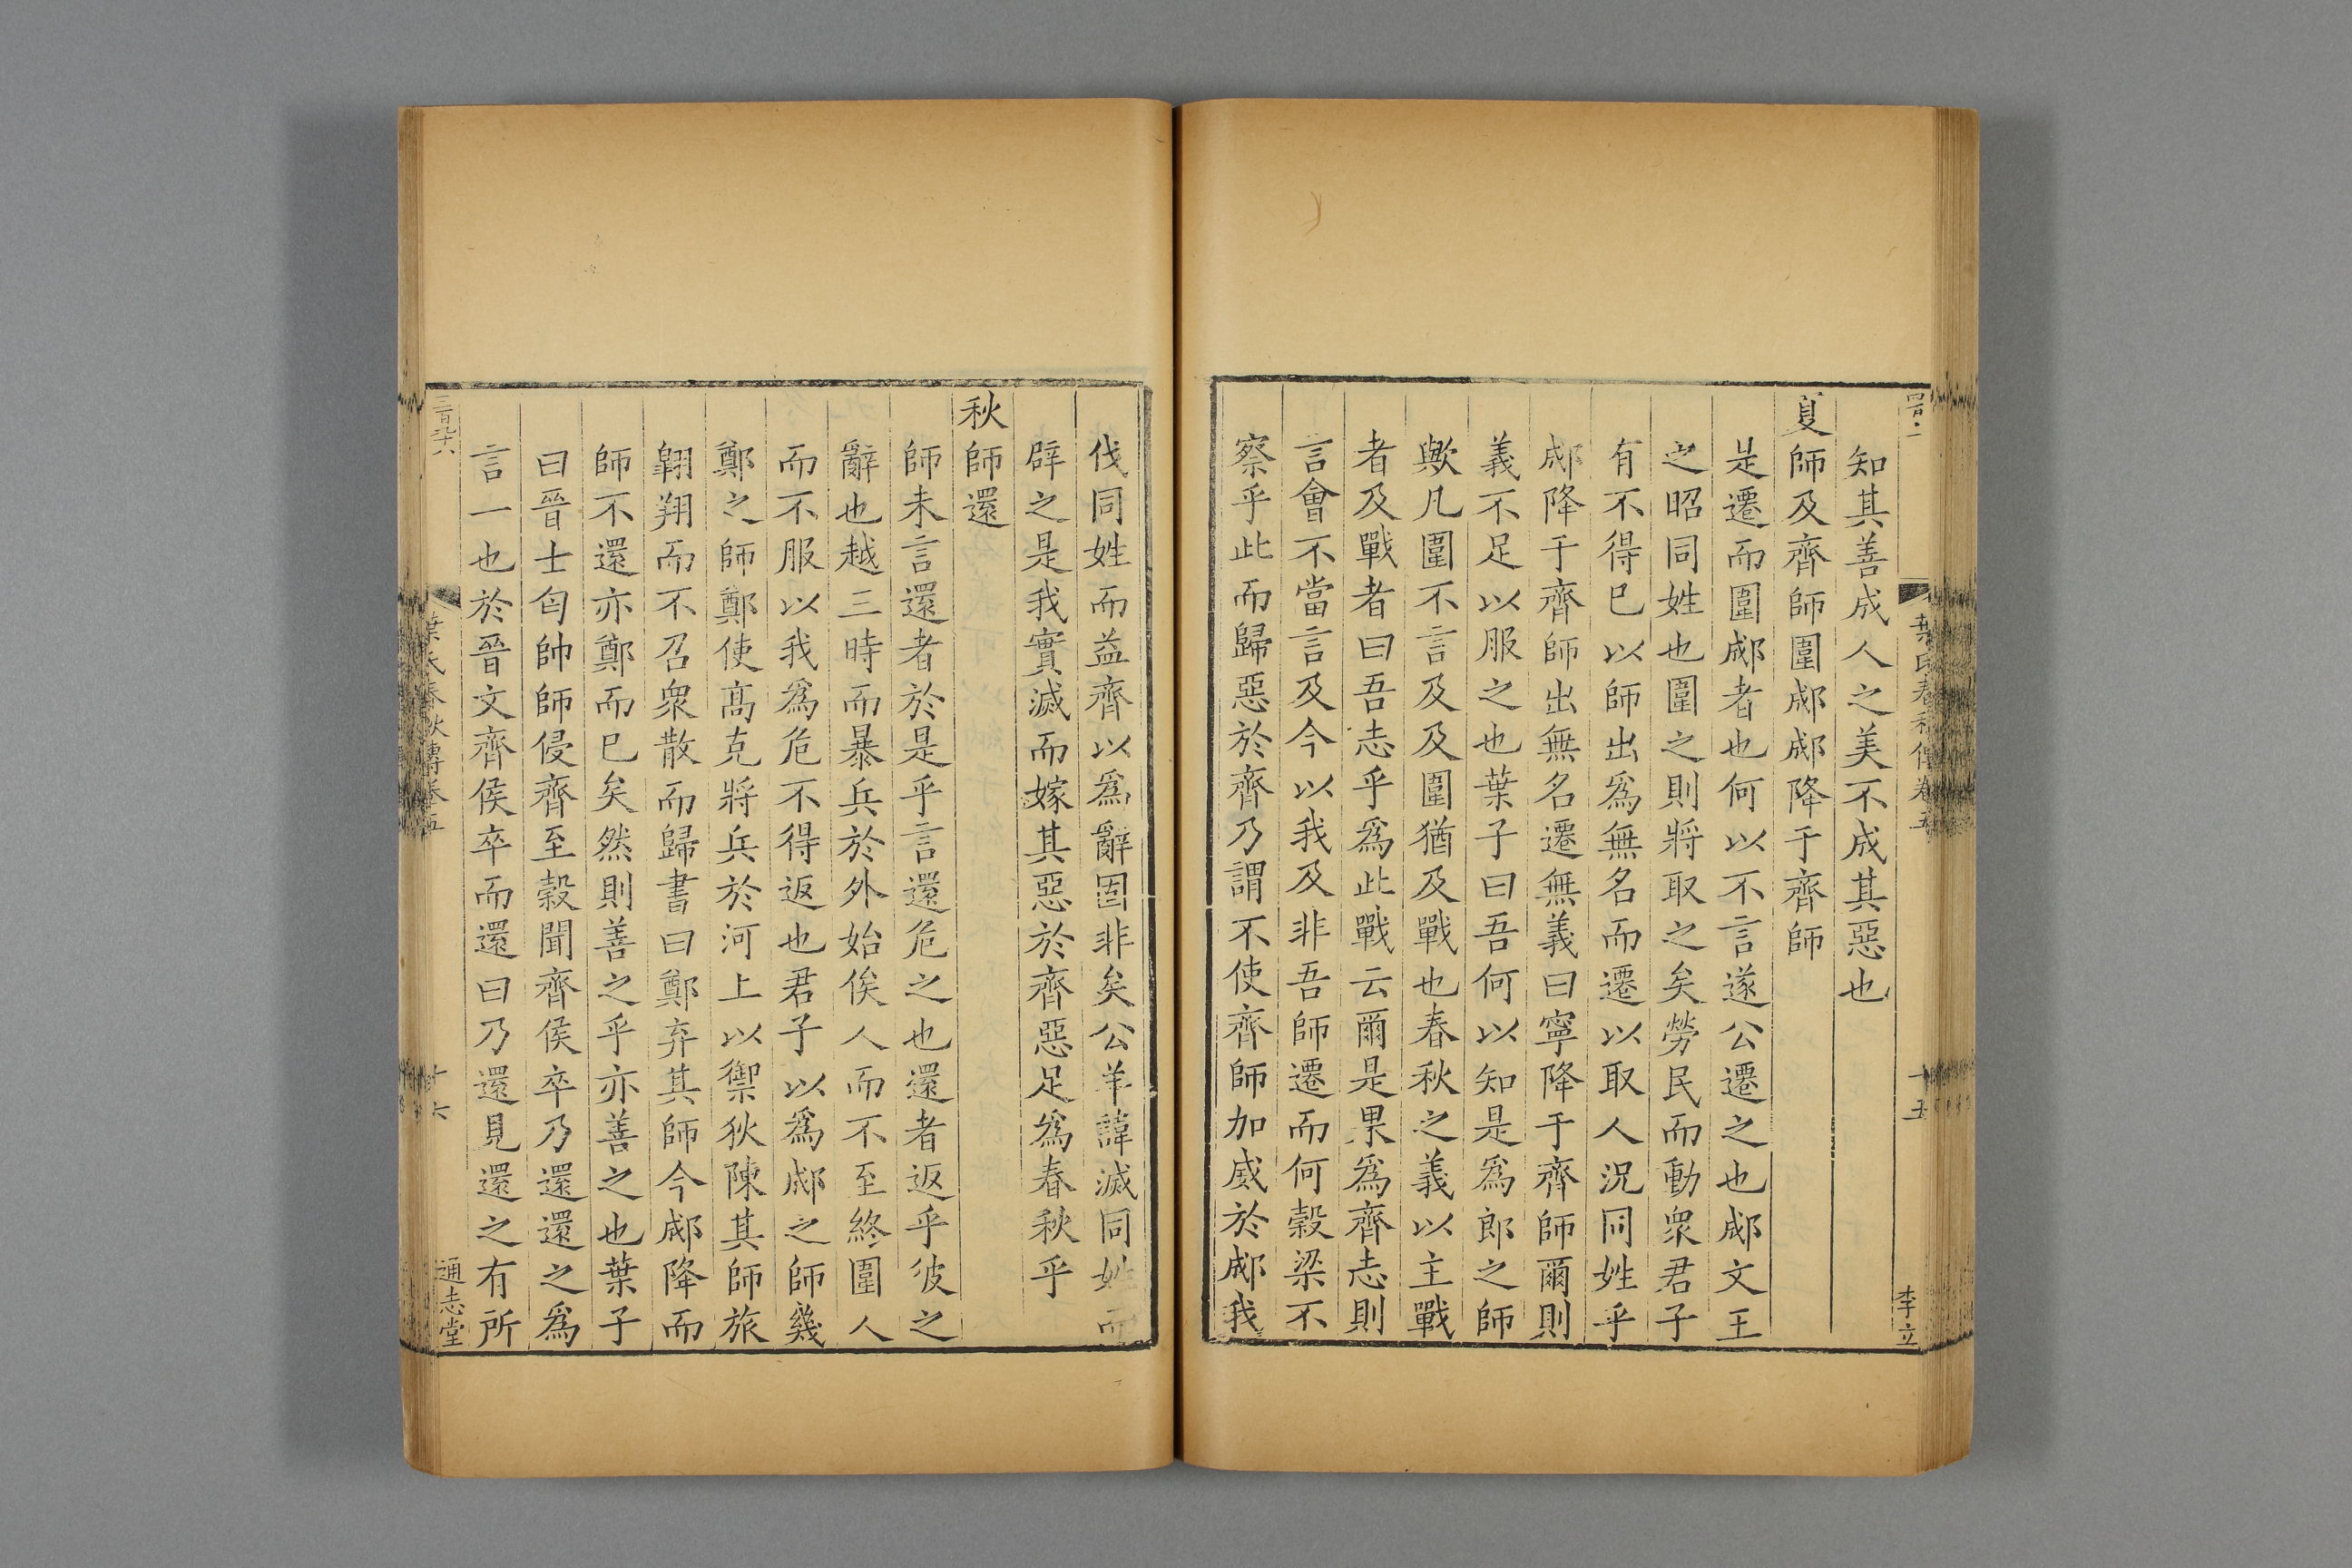 知其善成人之美不成其惡也
夏師及齊師圍郕郕降于齊師
是遷而圍郕者也何以不言遂公遷之也郕文王
之昭同姓也圍之則將取之矣勞民而動衆君子
有不得已以師出爲無名而遷以取人況同姓乎
郕降于齊師出無名遷無義曰寧降于齊師爾則
義不足以服之也葉子曰吾何以知是爲郎之師
歟凡圍不言及及圍猶及戰也春秋之義以主戰
者及戰者曰吾志乎爲此戰云爾是果爲齊志則
言會不當言及今以我及非吾師遷而何榖梁不
察乎此而歸惡於齊乃謂不使齊師加威於郕我
葉氏春秋傳卷五
十五
李立
伐同姓而益齊以爲辭固非矣公羊諱滅同姓而
辟之是我實滅而嫁其惡於齊惡足爲春秋乎
秋師還
師未言還者於是乎言還危之也還者返乎彼之
辭也越三時而暴兵於外始俟人而不至終圍人
而不服以我爲危不得返也君子以爲郕之師幾
鄭之師鄭使高克將兵於河上以禦狄陳其師旅
翺翔而不召衆散而歸書曰鄭弃其師今郕降而
師不還亦鄭而已矣然則善之乎亦善之也葉子
曰晉士匄帥師侵齊至榖聞齊侯卒乃還還之爲
言一也於晉文齊侯卒而還曰乃還見還之有所
葉氏春秋傳卷五
十六
通志堂